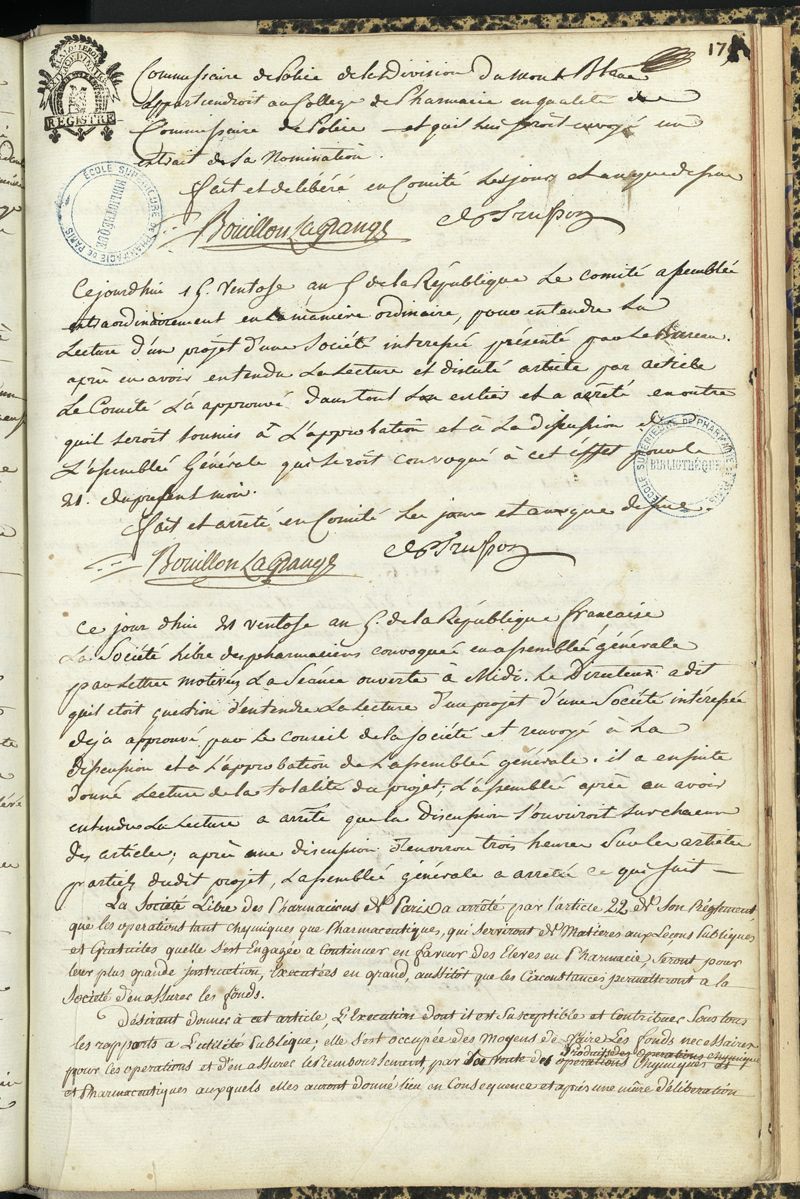 17
REGISTRE
Commissaire de Police de la Division du mont Blanc
appartiendroit au College de Pharmacie en qualité de
Commissaire de Police et quil lui seroit envoyé un
extrait de sa nomination.
fait et deliberé en Comité les jour et an que dessus
ÉCOLE SUPÉRIEURE DE PHARMACIE DE PARIS
BIBLIOTHÈQUE
Bouillon LaGrange
Cejourdhui 15 Ventose an 5 de la République Le Comité assemblée
extraordinairement en la manière ordinaire, pour entendre La
Lecture d'un projet d'une Société interessée présenté par le Bureau.
après en avoir entendu La Lecture et discuté article par article
Le Comité L'a approuvé dans tout Son entier et a arrêté en outre
quil seroit soumis à L'approbation et à La discussion de
L'assemblée Générale qui seroit convoqué a cet éffet pour le
21. du présent mois.
ÉCOLE SUPÉRIEURE DE PHARMACIE DE PARIS
BIBLIOTHÈQUE
fait et arrêté en Comité les jour et an que dessus.
Bouillon LaGrange
Ce jour dhui 21 ventose an 5. de la République française
La Société Libre des pharmaciens convoquée en assemblée générale
par Lettres motivées La Séance ouverte à Midi. Le Directeur a dit
quil etoit question d'entendre La Lecture d'un projet d'une Société intéressée
deja approuvé par Le Conseil de la Société et renvoyé à La
discussion et à L'approbation de L'assemblée générale. il a ensuite
donné Lecture de la totalité du projet; L'assemblée après en avoir
entendu La Lecture a arrêté que la discussion s'ouvriroit sur chacun
des articles; après une discussion d'environ trois heures Sur les articles
partiels dudit projet, L'assemblée générale a arretée ce qui suit —
La Société Libre des Pharmaciens de Paris a arrêté par l'article 22 de Son Réglement,
que les operations tant Chymiques que Pharmaceutiques, qui Serviront de Matieres aux Leçons Publiques
et Gratuites quelle S'est Engagée a Continuer en faveur des Eleves en Pharmacie, Seront pour
leur plus grande instruction, Executées en grand, aussitôt que les Circonstances permettront a la
Société d'en assurer les fonds.
Désirant donner à cet article, L'Execution dont il est Susceptible et Contribuer Sous tous
les rapports a L'utilité Publique; elle S'est occupée des Moyens de faire Les fonds necessaires
pour ces operations et d'en assurer le Remboursement, par la vente des Produits des operations Chymiques
et Pharmaceutiques auxquels elles auront donné lieu en Consequence et après une mûre déliberation